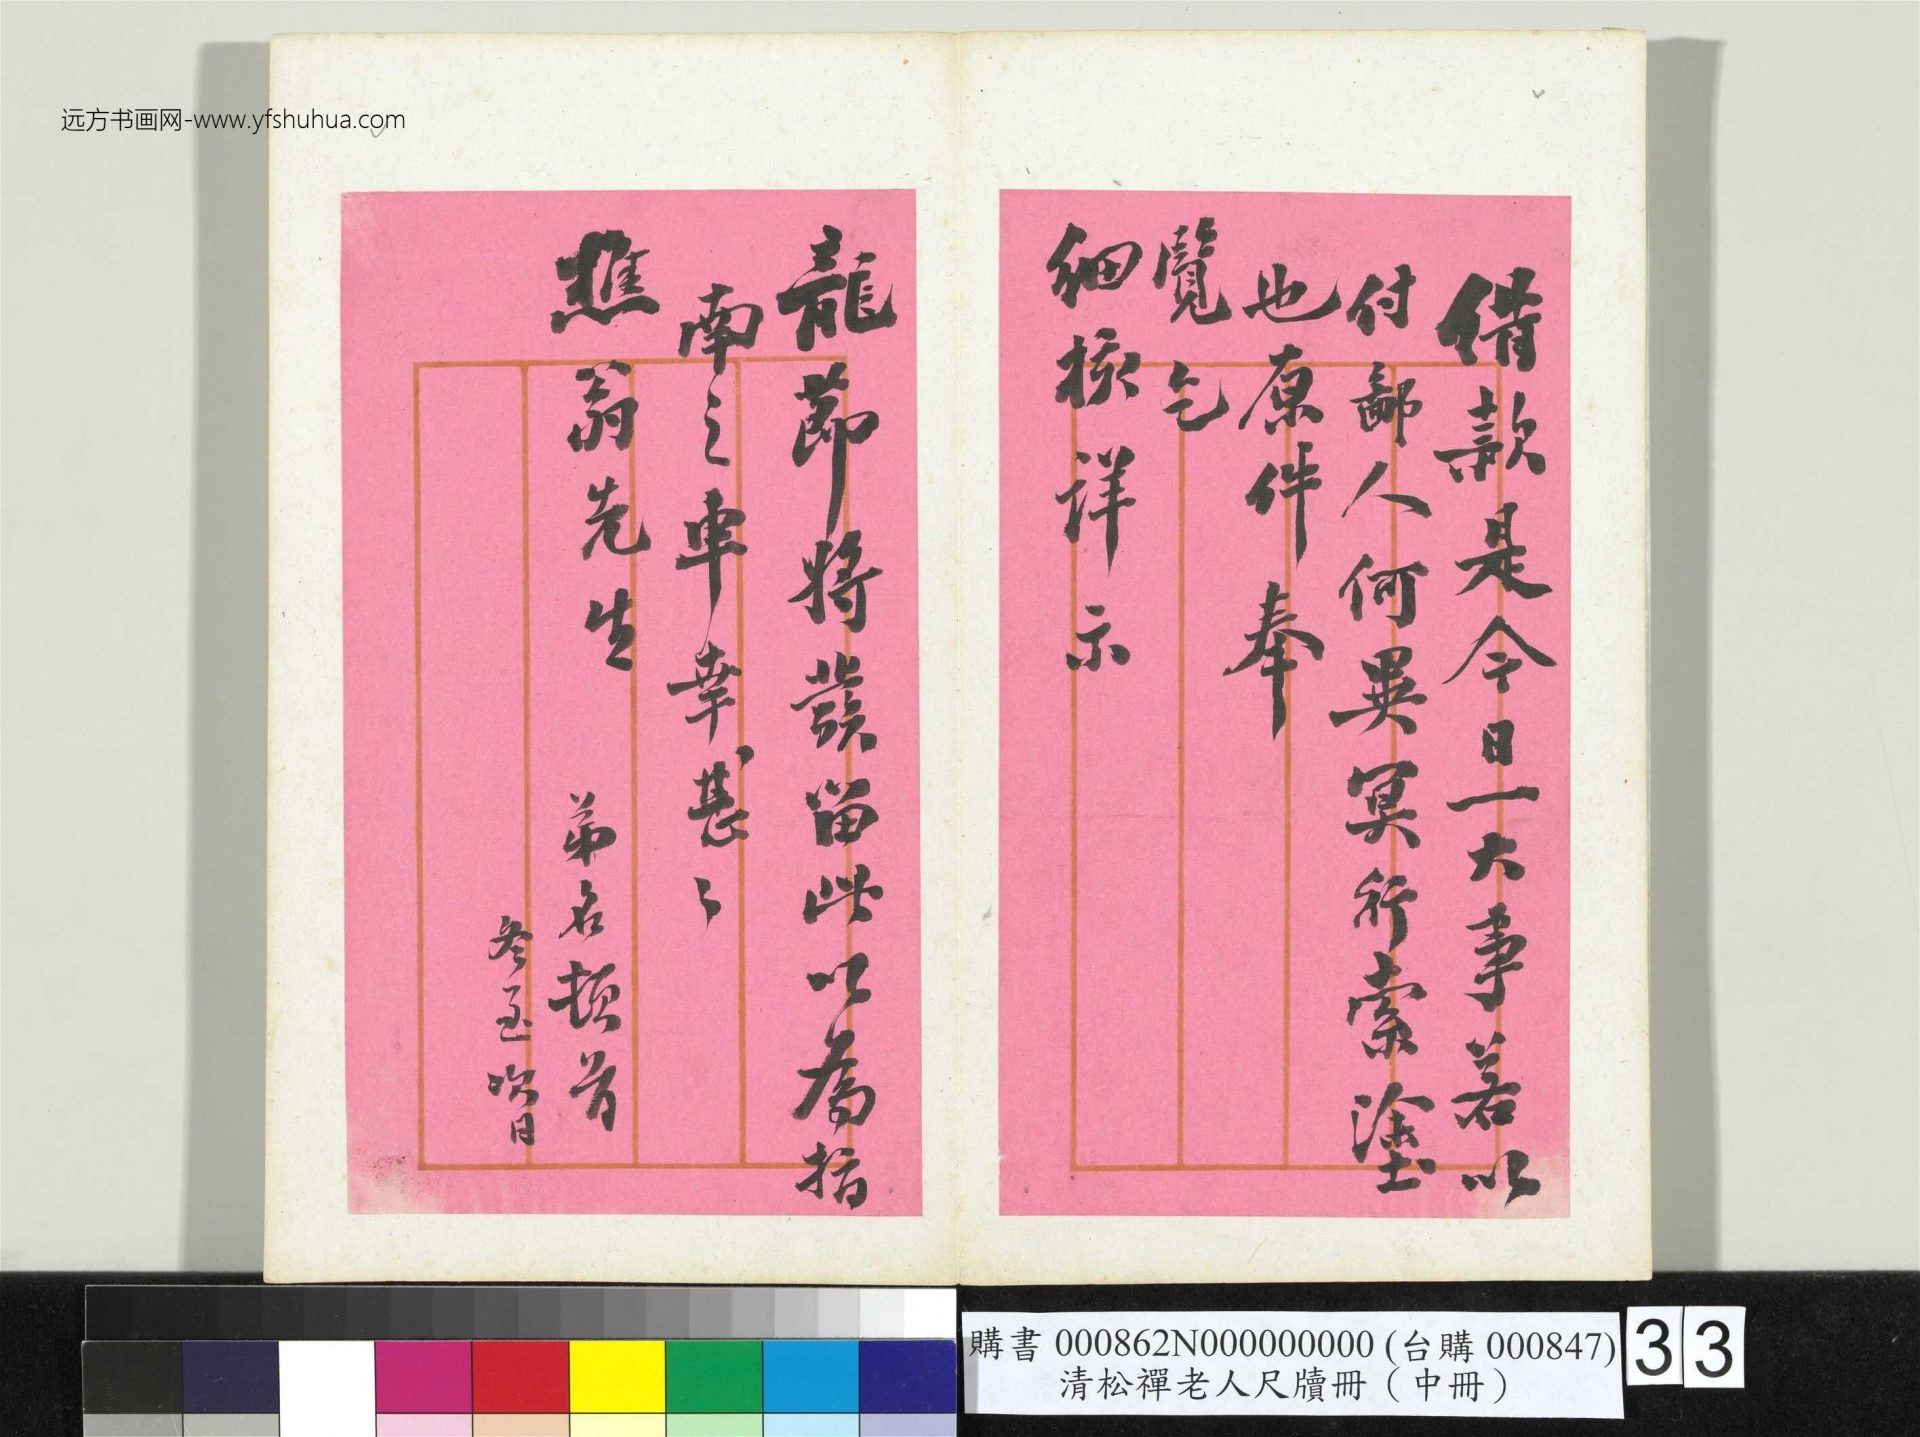 远方书画网-www.yfshuhua.com
借款是今日一大事若以
付鄙人何異冥行索塗
也原件奉
覽乞
細核詳示
龍節將發留此以為指
南之車幸甚〻
樵翁先生
弟名頓首
冬至次日
購書 000862N000000000 (台購 000847)
清松禪老人尺牘冊（中冊）
33